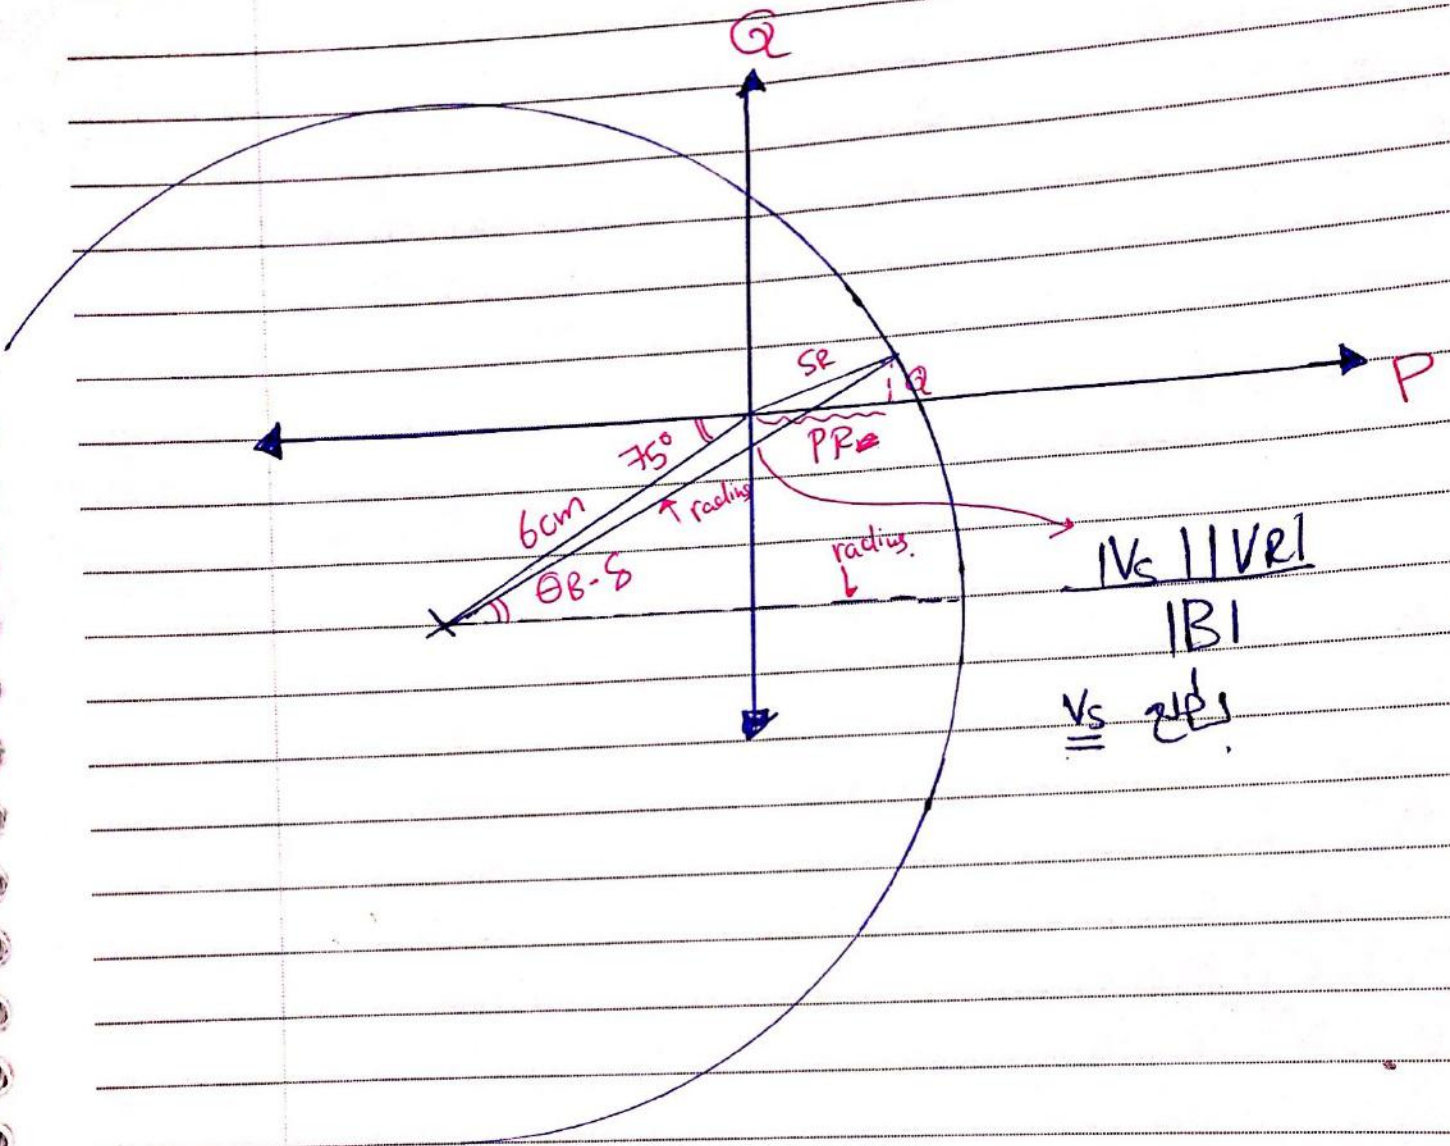 Q
SR
Q
P
75°
PR
6cm
radius
radius.
θB-δ
|Vs||VR|
|B|
Vs